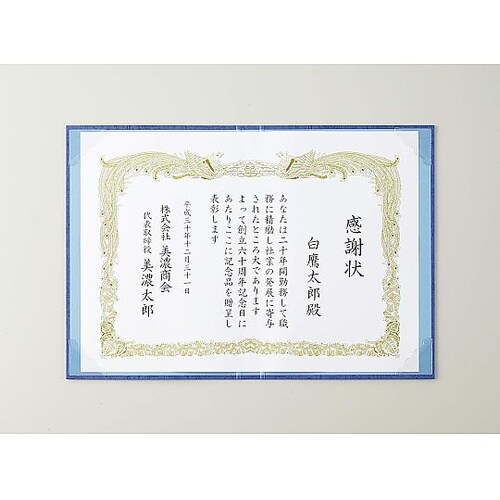 感謝状
白鷹太郎殿
あなたは二十年間勤務して職
務に精励し社業の発展に寄与
されたところ大であります
よって創立六十周年記念日に
あたりここに記念品を贈呈し
表彰します
平成三十年十二月三十一日
株式会社 美濃商会
代表取締役 美濃太郎